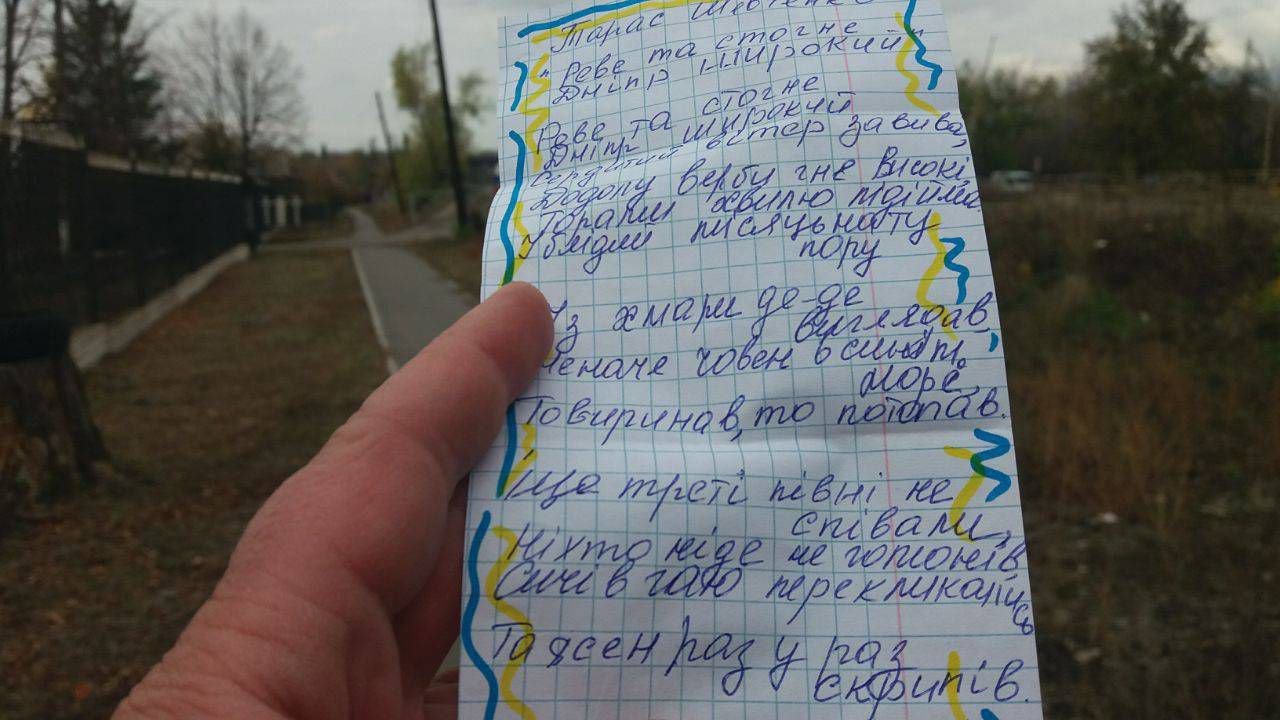 Тарас Шевченко
"Реве та стогне
Дніпр широкий"
Реве та стогне
Дніпр широкий
Сердитий вітер завива,
Додолу верби гне високі,
Горами хвилю підійма.
І блідий місяць на ту
пору
Із хмари де-де
виглядав,
Неначе човен в синім
морі,
То виринав, то потопав.
Іще треті півні не
співали,
Ніхто ніде не гомонів
Сичі в гаю перекликались
Та ясен раз у раз
скрипів.